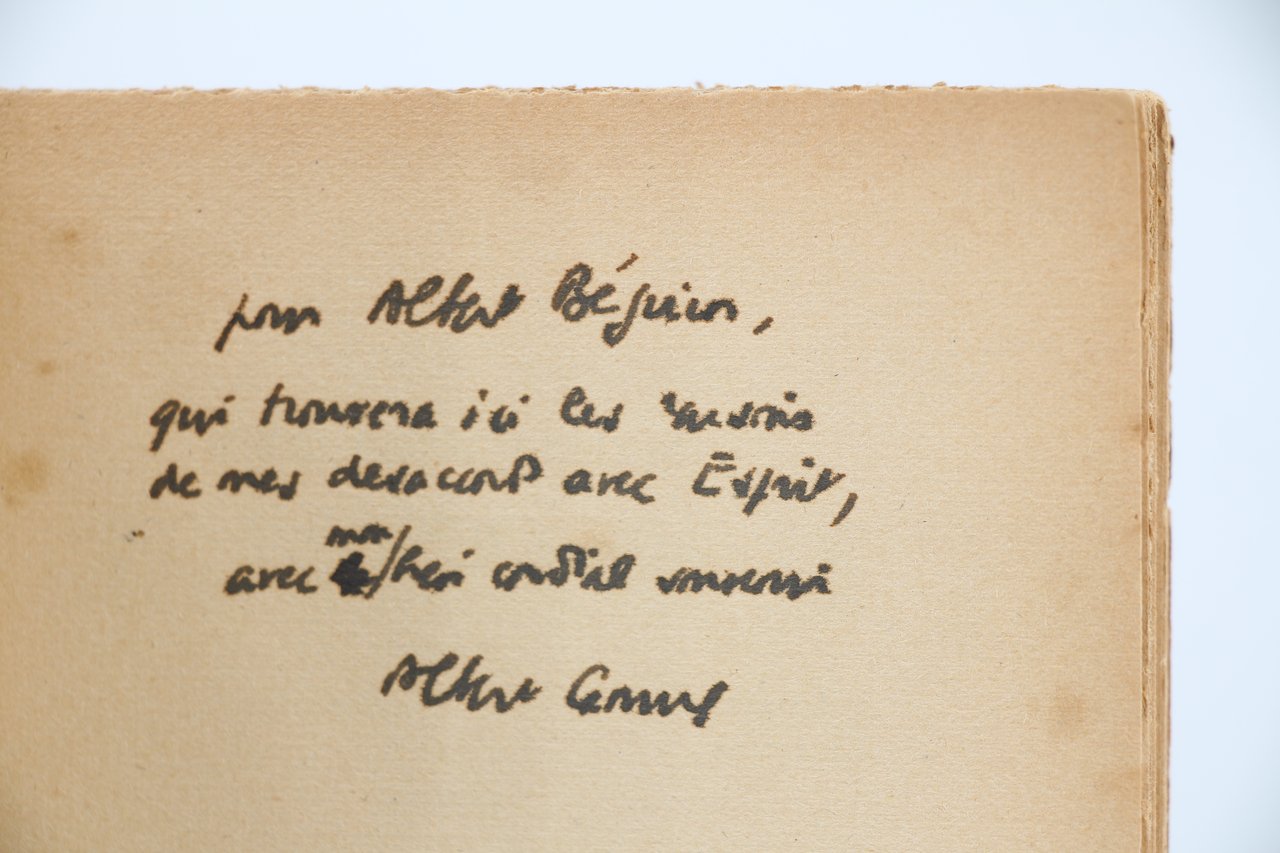 pour Albert Béguin,
qui trouvera ici les raisons
de mes desaccords avec Esprit,
mon
avec très cordial souvenir
Albert Camus